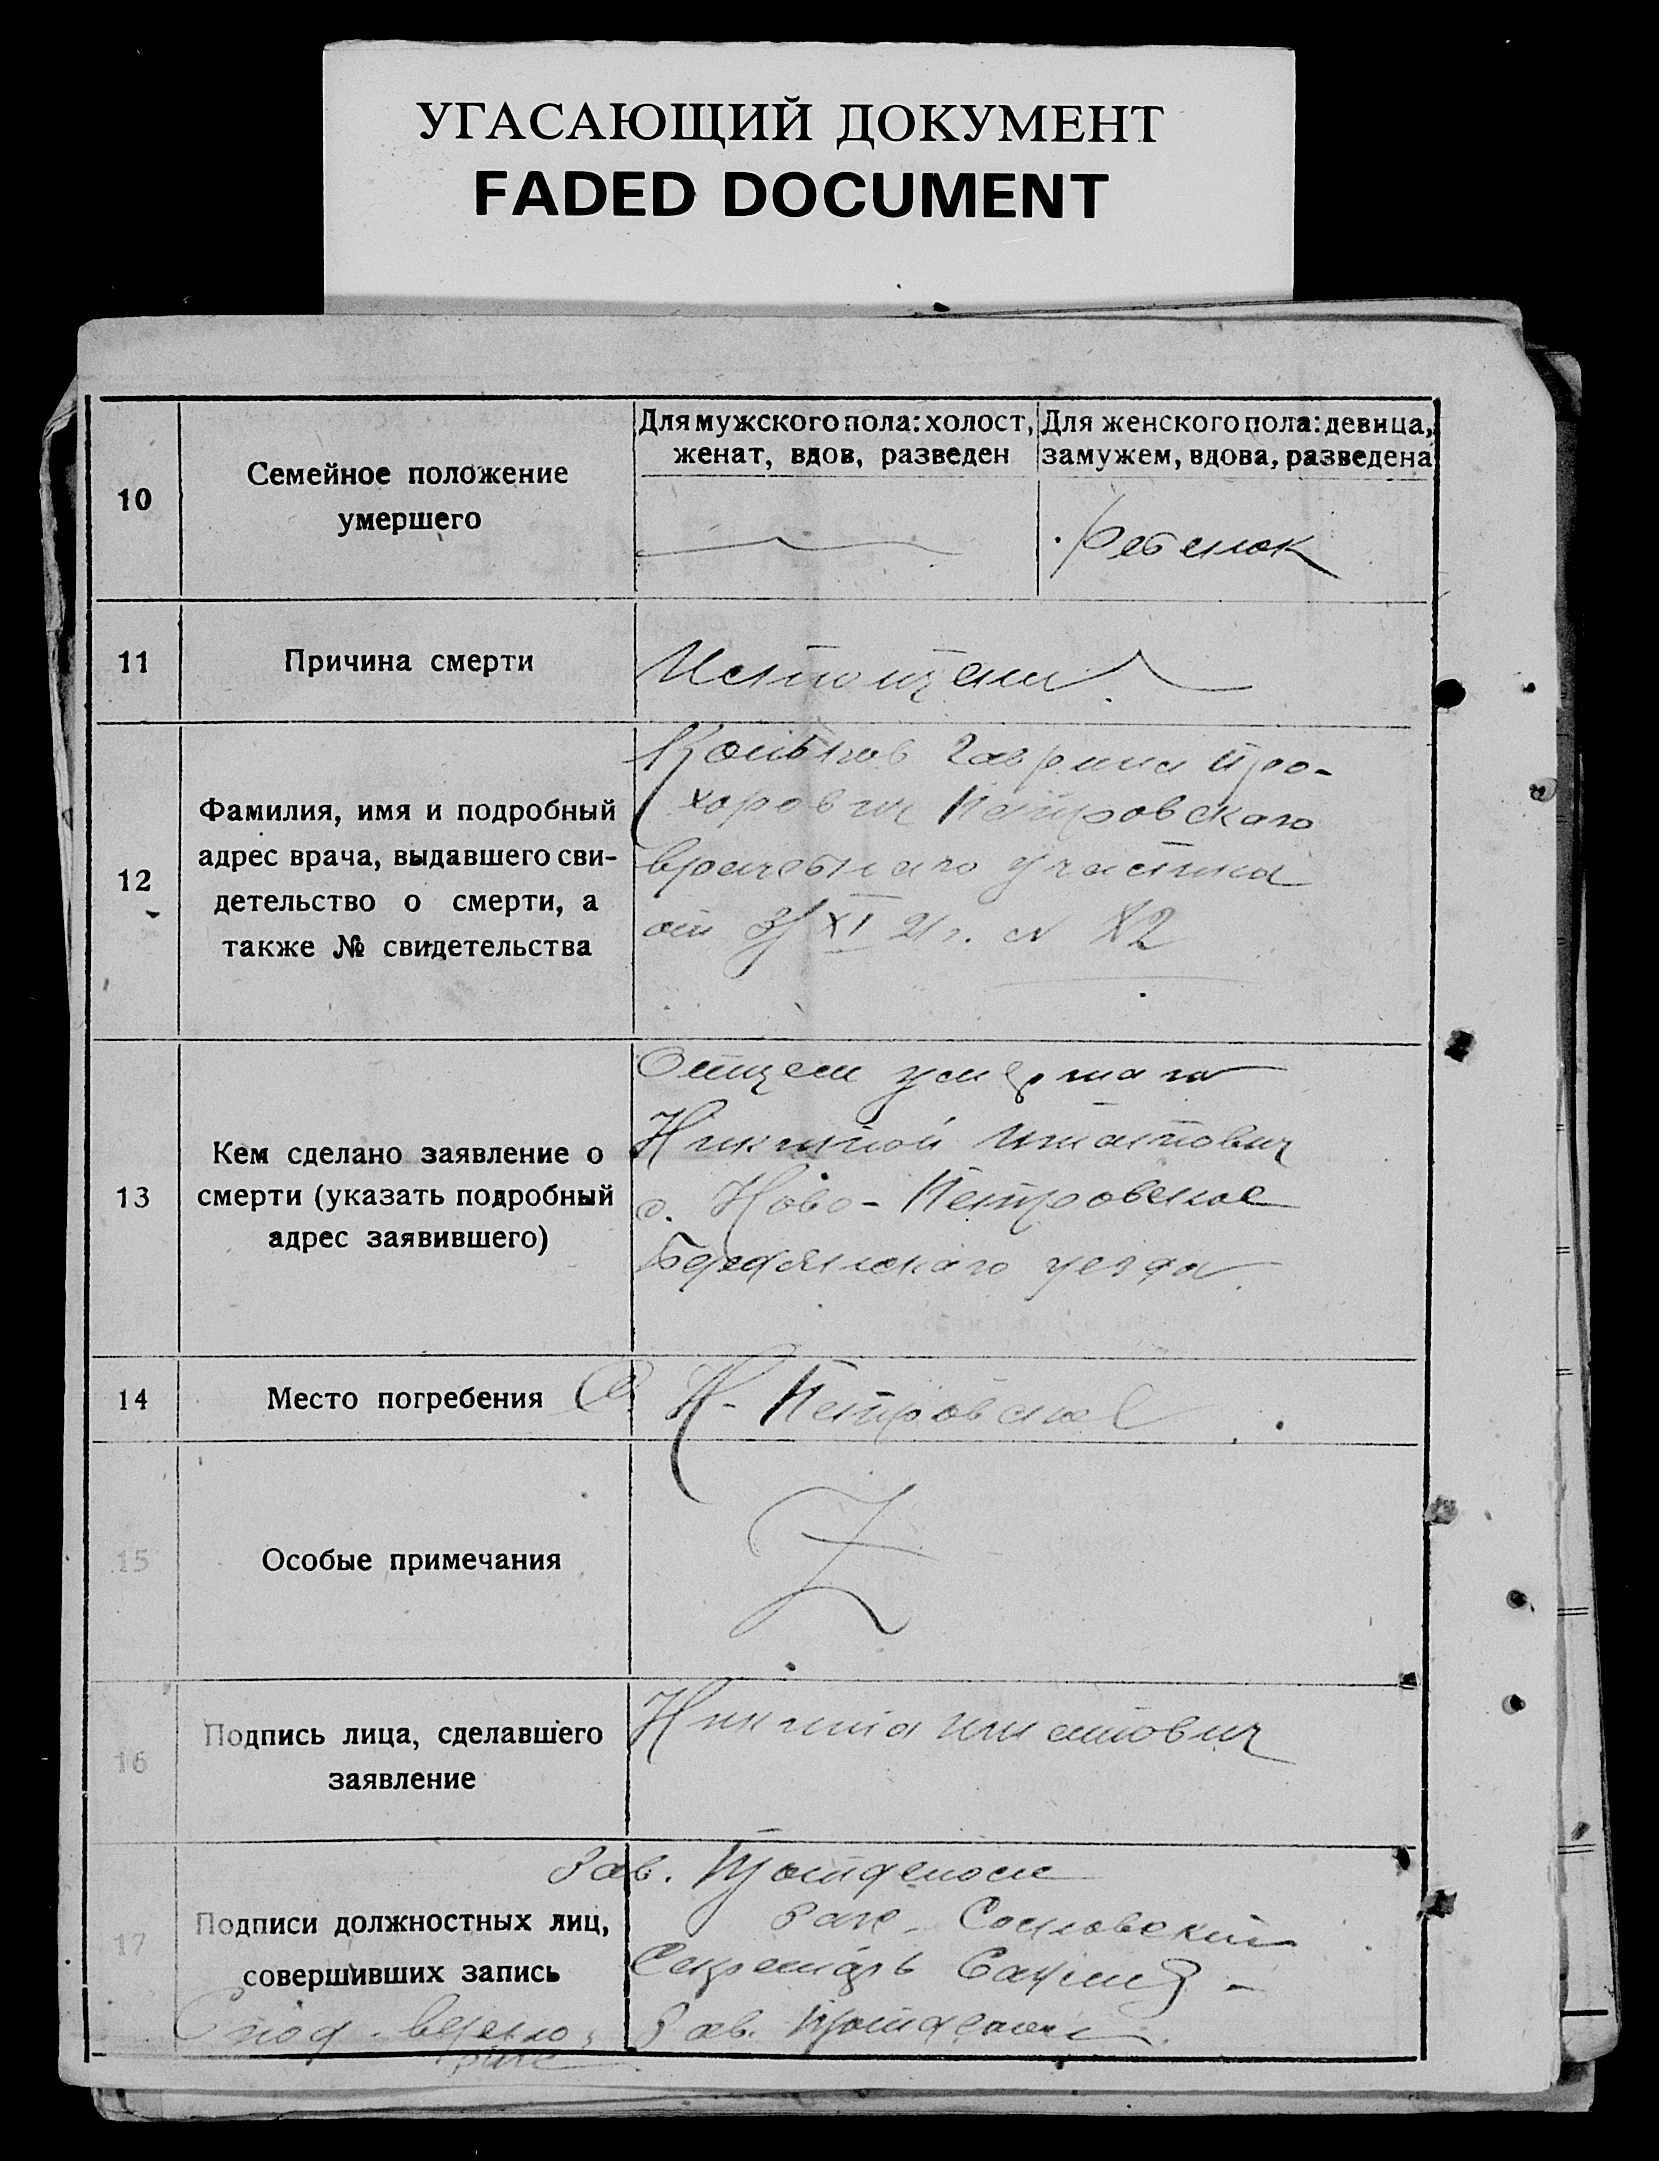 УГАСАЮЩИЙ ДОКУМЕНТ
FADED DOCUMENT
10
Семейное положение
умершего
Для мужского пола: холост,
женат, вдов, разведен
Для женского пола: девица,
замужем, вдова, разведена
Ребенок
11
Причина смерти
12
Фамилия, имя и подробный
адрес врача, выдавшего сви-
детельство о смерти, а
также № свидетельства
Гаврила Про-
хорович Петровскаго
врачебнаго участка
от XI 21 г.
13
Кем сделано заявление о
смерти (указать подробный
адрес заявившего)
Отцем умершаго
Никитой
с. Ново-Петровское
Бердянскаго уезда
14
Место погребения
С. Н-Петровское
15
Особые примечания
Z
16
Подпись лица, сделавшего
заявление
Никита
17
Подписи должностных лиц,
совершивших запись
Зав.
Секретарь
Зав.